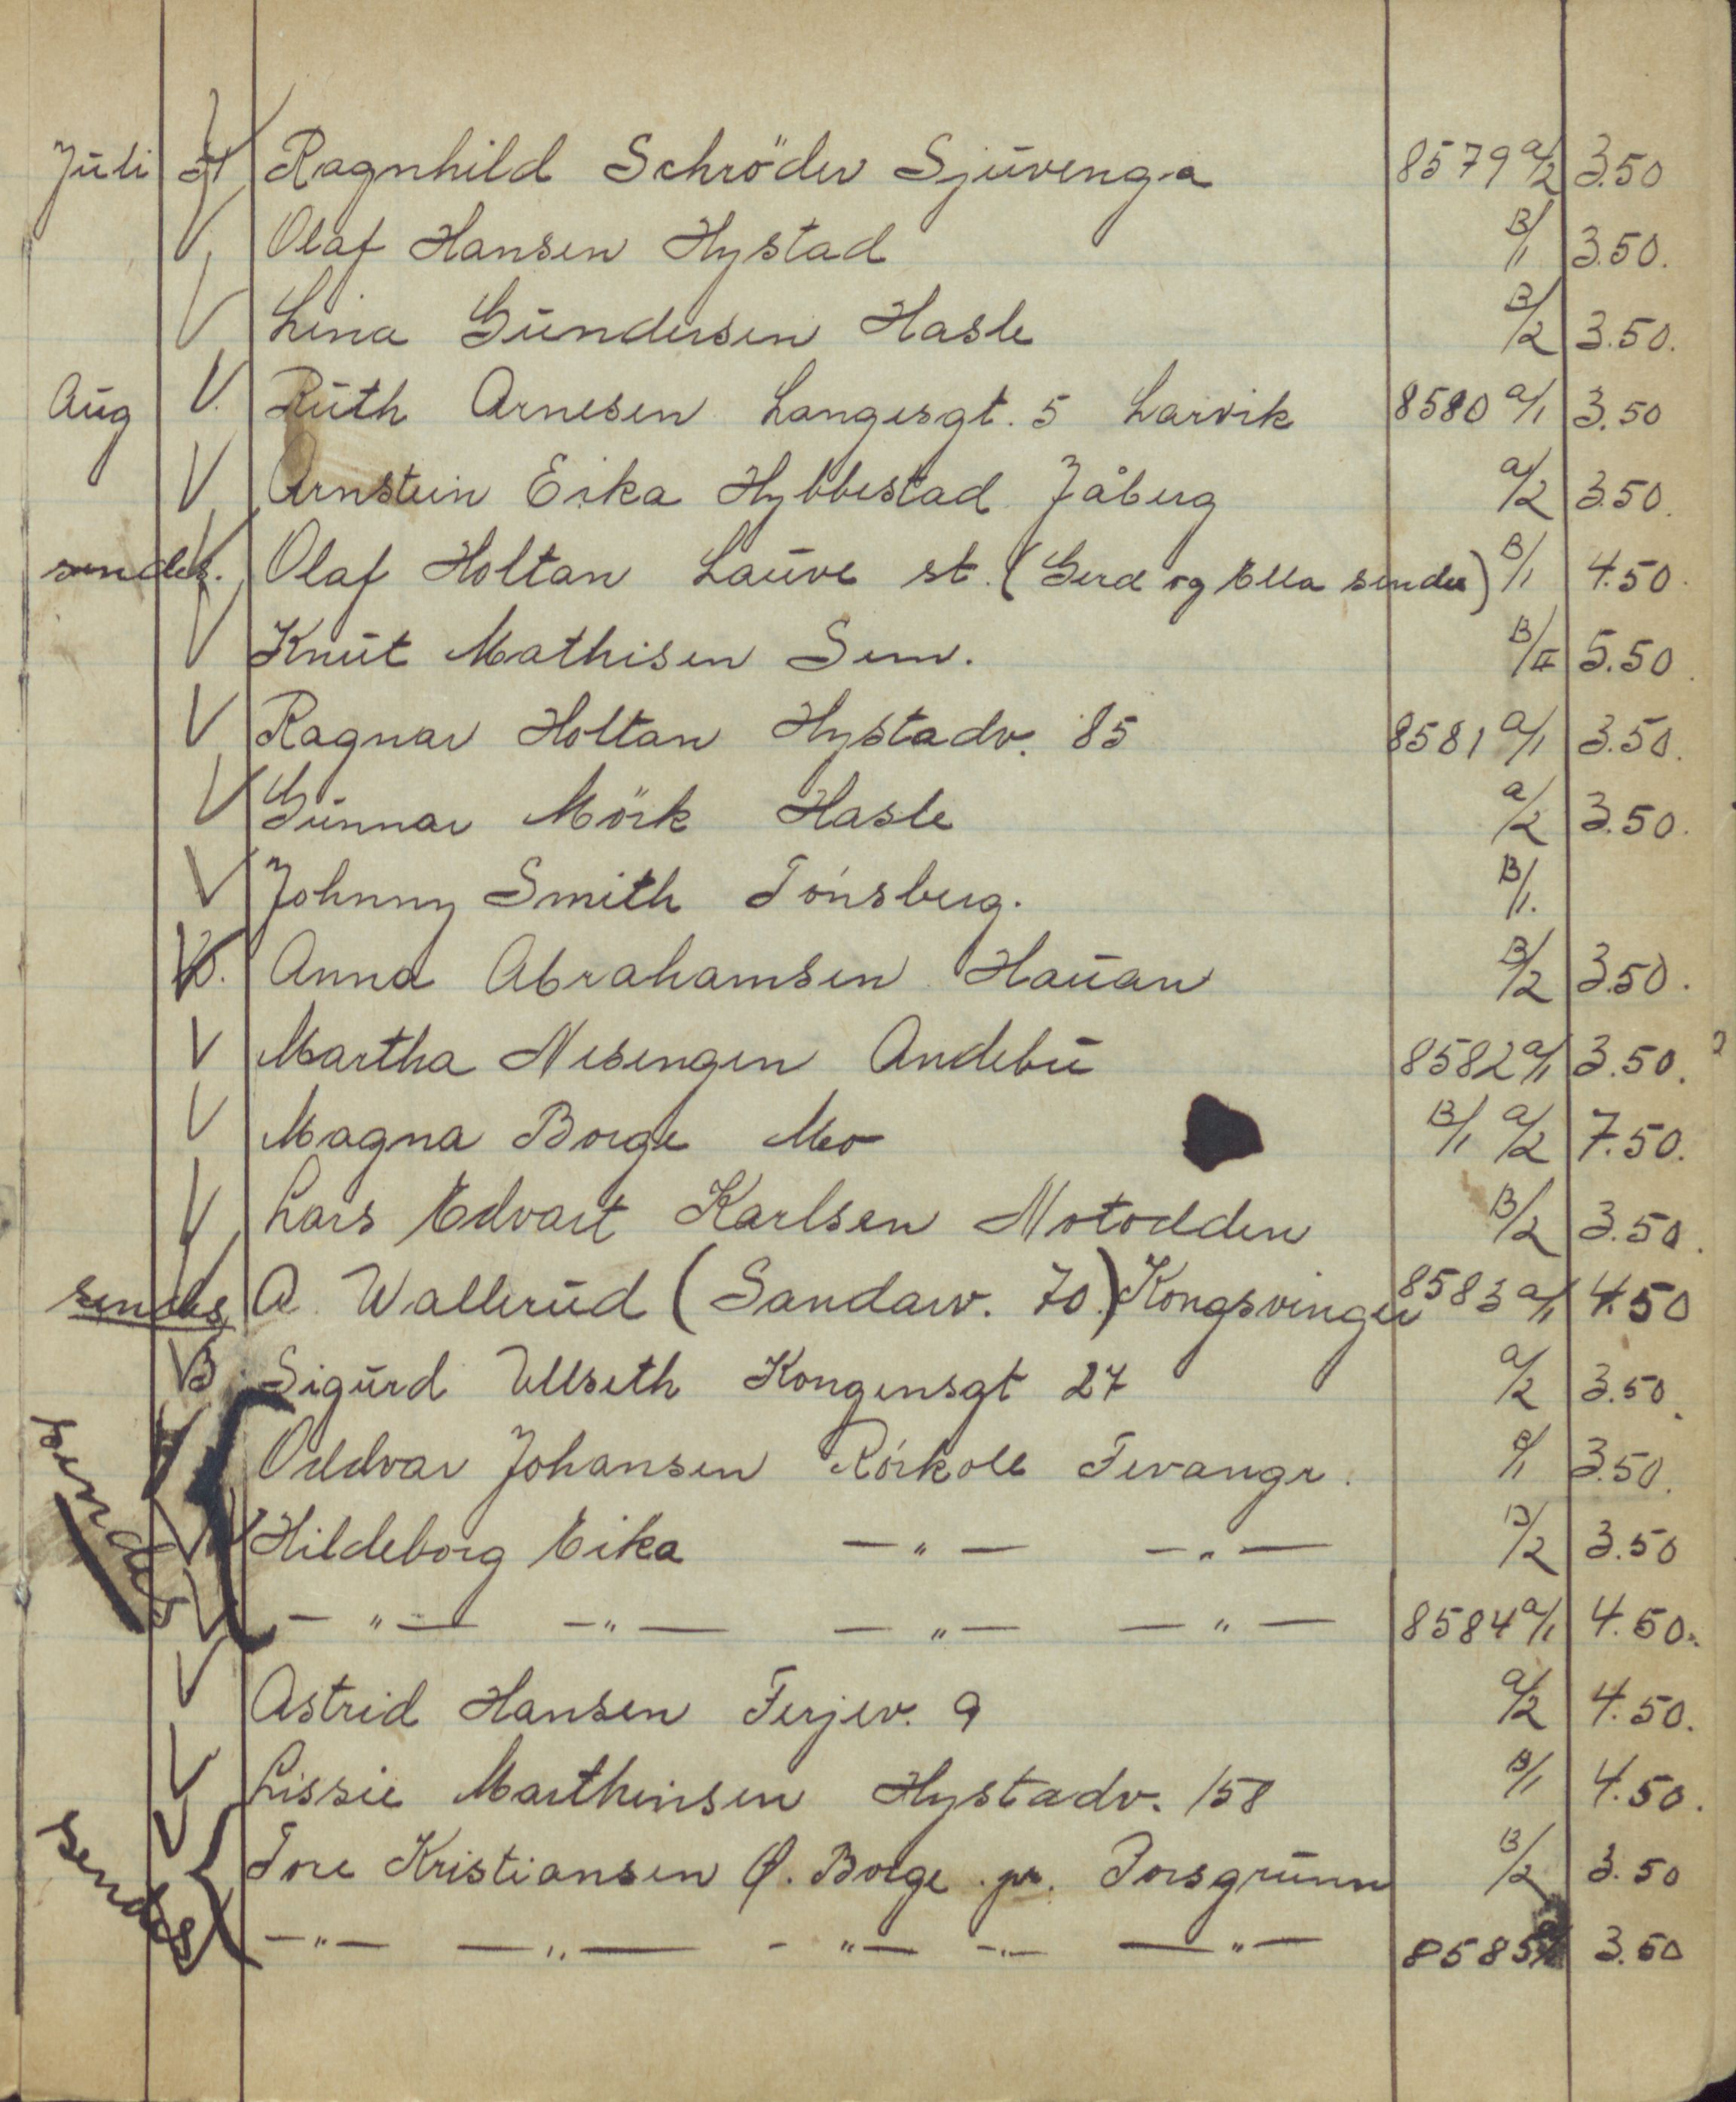 Juli 31 Ragnhild Schröder Sjuvenga 8579 a/2 3.50
V Olaf Hansen Hystad B/1 3.50.
V Lina Gundersen Hasle B/2 3.50.
Aug V. Ruth Arnesen Langesgt. 5 Larvik 8580 a/1 3.50
V Arnstein Eika Hybbestad Jåberg a/2 3.50.
sendes. V Olaf Holtan Lauve st. (Gerd og Ella sender) B/1 4.50.
V Knut Mathisen Sem. B/II 5.50.
V Ragnar Holtan Hystadv. 85 8581 a/1 3.50.
V Gunnar Mörk Hasle a/2 3.50.
V Johnny Smith Tönsberg. B/1.
V B. Anna Abrahamsen Hauan B/2 3.50.
V Martha Nesengen Andebu 8582 a/1 3.50.
V Magna Borge Mo B/1 a/2 7.50.
V Lars Edvart Karlsen Notodden B/2 3.50.
sendes V A. Wallerud (Sandarv. 70.) Kongsvinger 8583 a/1 4.50
VB. Sigurd Ullseth Kongensgt 27 a/2 3.50.
sendes V { Oddvar Johansen Rörkoll Tevangr. B/1 3.50.
V Hildeborg Eika — " — — " — B/2 3.50
V — " — — " — — " — — " — 8584 a/1 4.50.
V Astrid Hansen Ferjev. 9 a/2 4.50.
V Lissie Marthinsen Hystadv. 158 B/1 4.50.
sendes V { Tore Kristiansen Ø. Borge pr. Porsgrunn B/2 3.50
V — " — — " — - " — - " — — " — 8585 3.50